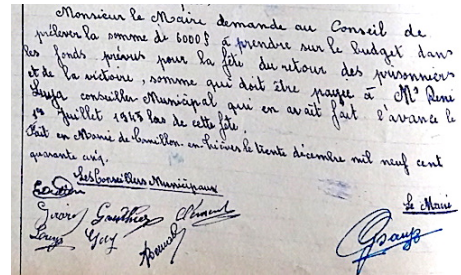 Monsieur le Maire demande au Conseil de
prélever la somme de 6000f à prendre sur le budget dans
les fonds prévus pour la fête du retour des prisonniers
et de la victoire, somme qui doit être payée à Mr René
conseiller Municipal qui en avait fait l'avance le
Juillet 1945 lors de cette fête.
Fait en Mairie de le trente décembre mil neuf cent
quarante cinq.
Les Conseillers Municipaux
Le Maire
Gauthier Clément